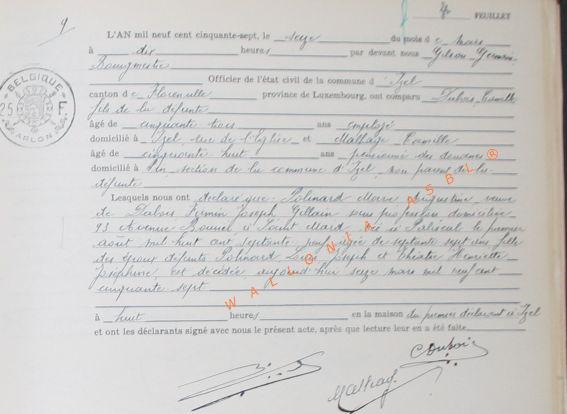 4 FEUILLET
9
L'AN mil neuf cent cinquante-sept, le seize du mois de mars
à dix heures par devant nous Gilson Germain
Bourgmestre
Officier de l'état civil de la commune d'Izel
canton de Florenville province de Luxembourg, ont comparu Dubois Camille
fils de la défunte
âgé de cinquante trois ans employé
domicilié à Izel, rue de l'Eglise et Camille
âgé de cinquante huit ans pensionné des douanes
domicilié à Pin section de la commune d'Izel, non parent de la
défunte
Lesquels nous ont déclaré que Polinard Marie Augustine veuve
de Dubois Firmin Joseph Ghislain sans profession domiciliée
93 Avenue Bouvier à Saint Mard, née à Paliseul le premier
août mil huit cent septante neuf âgée de septante sept ans fille
des époux défunts Polinard Joseph et Henriette
Joséphine, est décédée aujourd'hui seize mars mil neuf cent
cinquante sept
à huit heures en la maison du premier déclarant à Izel
et ont les déclarants signé avec nous le présent acte, après que lecture leur en a été faite.
CDubois
BELGIQUE
ARLON
25 F.
WALLONIA ASBL ®